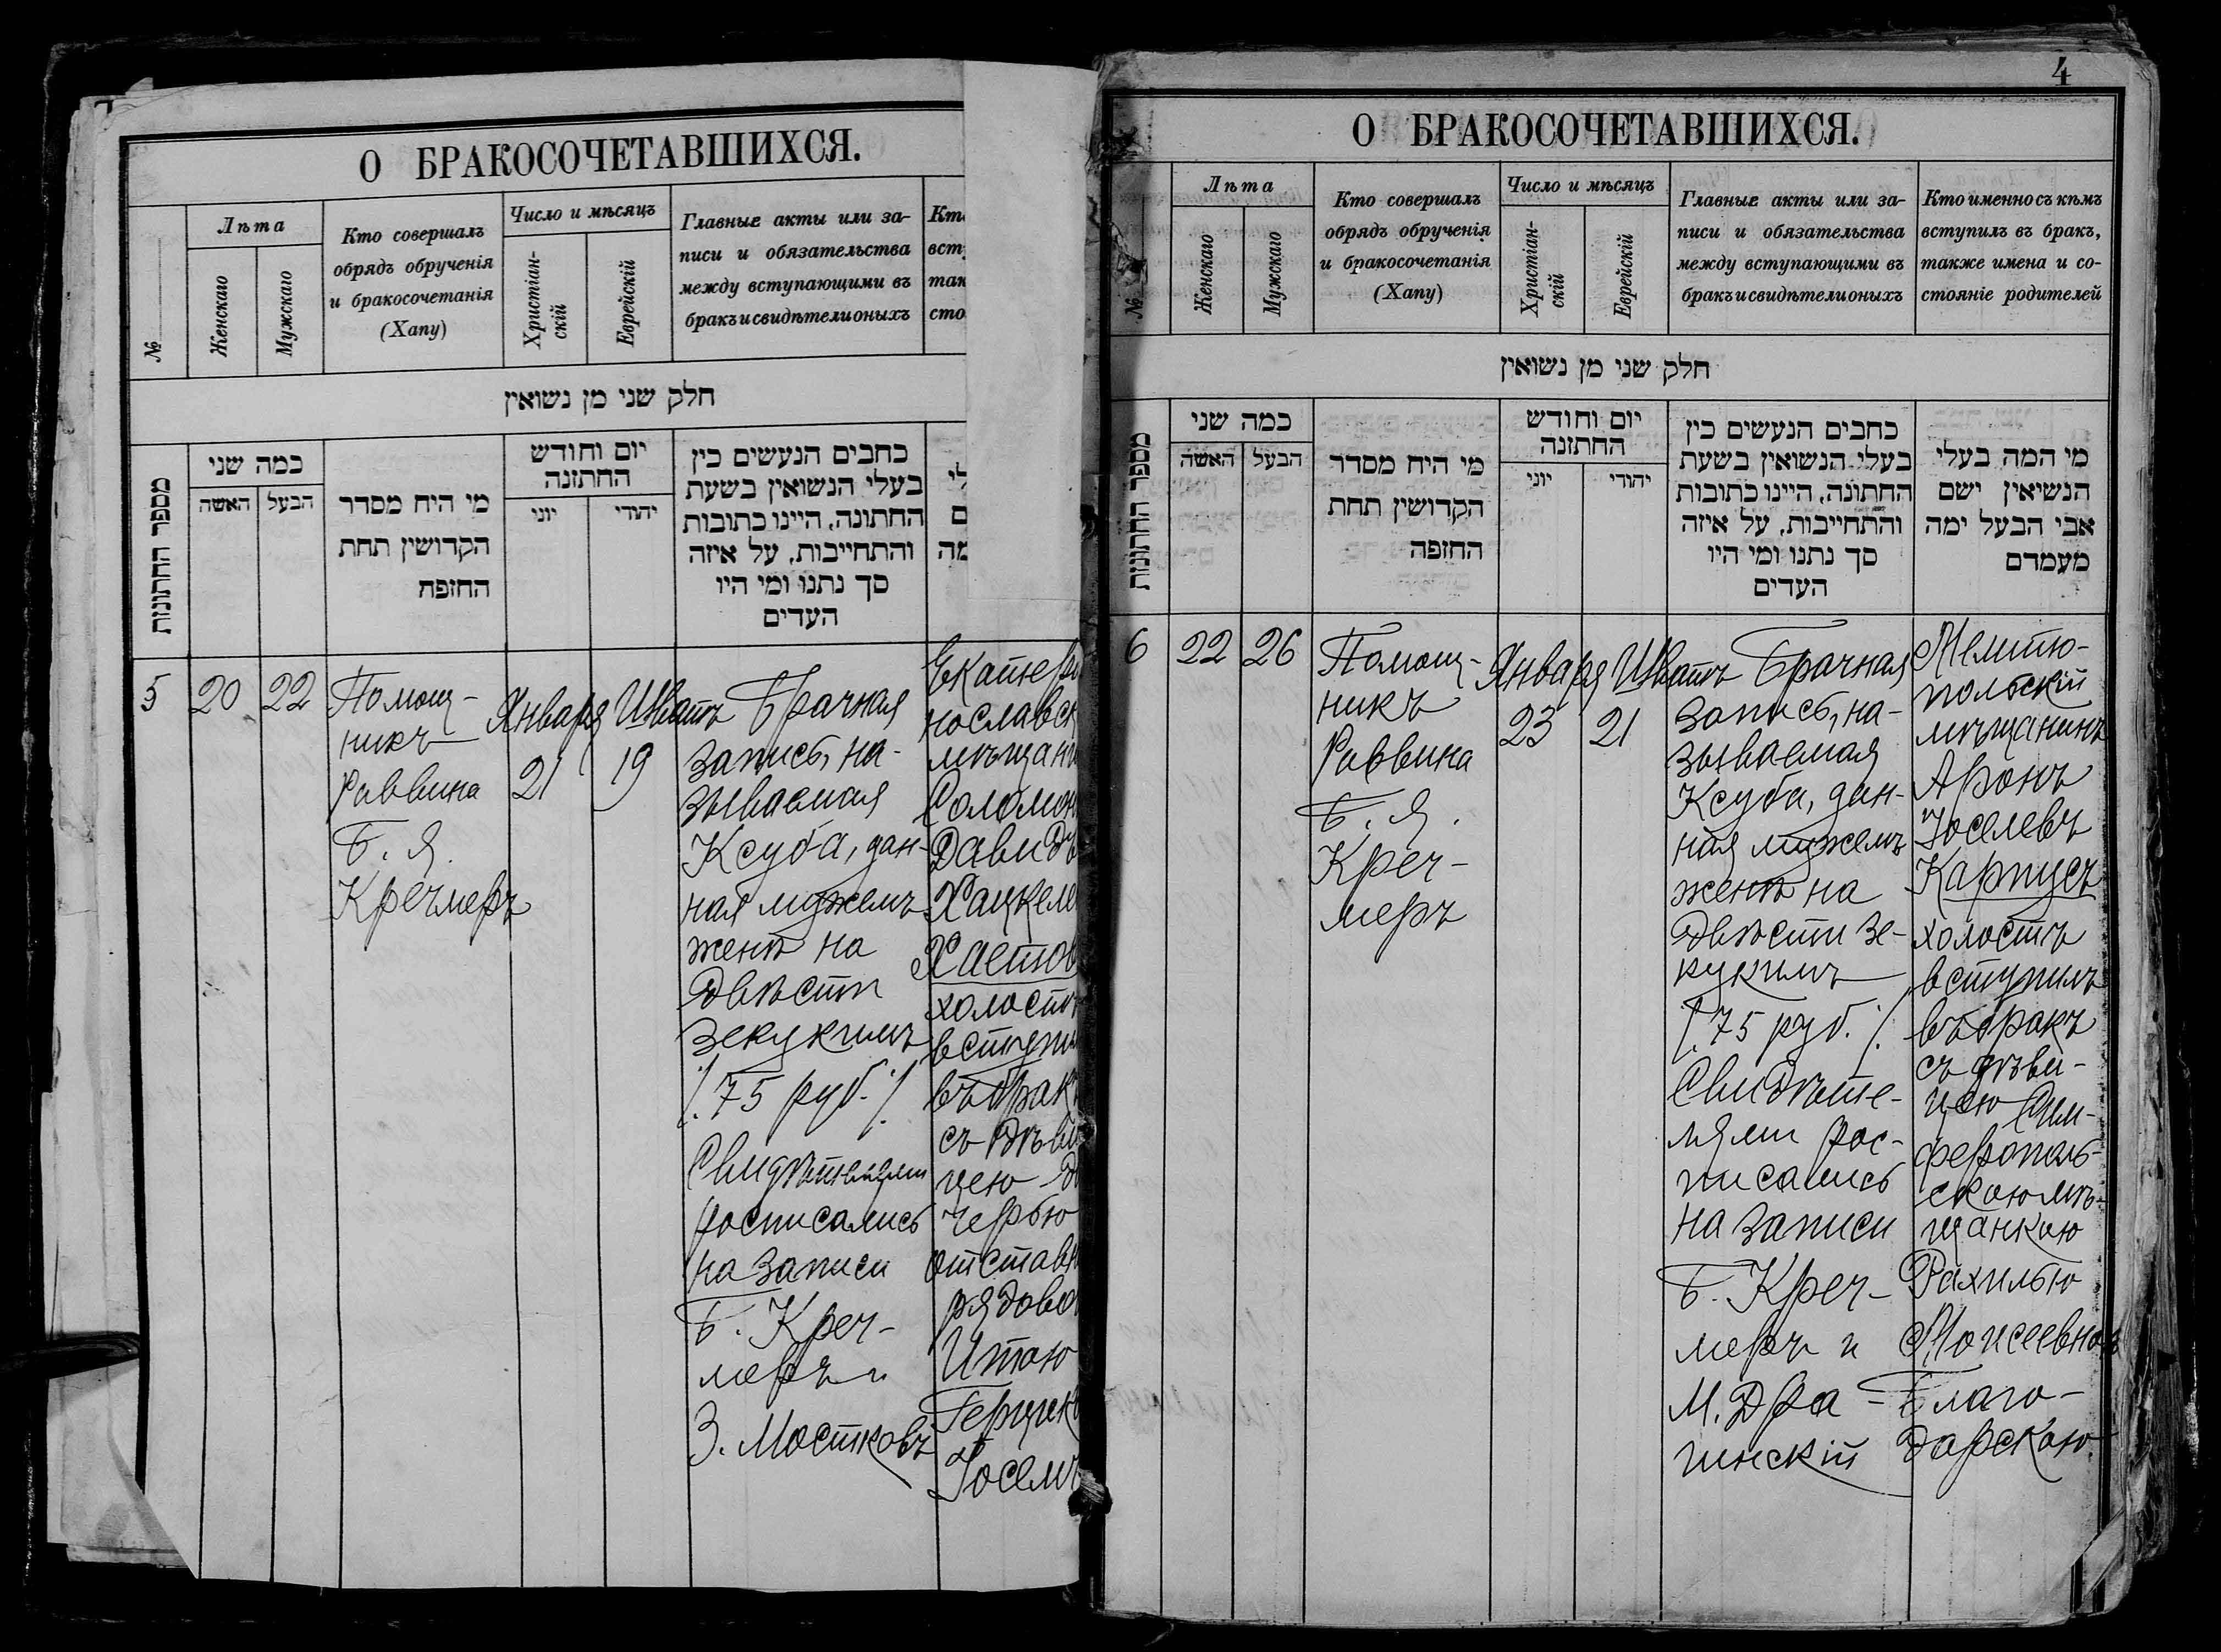 О БРАКОСОЧЕТАВШИХСЯ.
№
Лѣта
Женскаго
Мужскаго
Кто совершалъ
обрядъ обрученія
и бракосочетанія
(Хапу)
Число и мѣсяцъ
Христіан-
скій
Еврейскій
Главные акты или за-
писи и обязательства
между вступающими въ
бракъ и свидѣтели оныхъ
Кто
вст
так
сто
חלק שני מן נשואין
מספר החתונות
כמה שני
האשה
הבעל
מי היח מסדר
הקדושין תחת
החופה
יום וחודש
החתונה
יוני
יהודי
כחבים הנעשים כין
בעלי הנשואין בשעת
החתונה, היינו כתובות
והתחייבות, על איזה
סך נתנו ומי היו
העדים
5
20
22
Помощ-
никъ
Раввина
Б. Я.
Кречмеръ
Января
21
Шватъ
19
Брачная
запись, на-
зываемая
Ксуба, дан-
ная мужемъ
женѣ на
двѣсти
зекукимъ
/. 75 руб. /.
Свидѣтелями
росписались
на записи
Б. Креч-
меръ и
З. Мостковъ
Екатери
нославск
мѣщани
Соломон
Давидъ
Хацкеле
Хаетов
холостъ
вступи
въ брак
съ дѣви
цею до
черью
отставн
рядово
Итою
Герцек
Іосель
4
О БРАКОСОЧЕТАВШИХСЯ.
№
Лѣта
Женскаго
Мужскаго
Кто совершалъ
обрядъ обрученія
и бракосочетанія
(Хапу)
Число и мѣсяцъ
Христіан-
скій
Еврейскій
Главные акты или за-
писи и обязательства
между вступающими въ
бракъ и свидѣтели оныхъ
Кто именно съ кѣмъ
вступилъ въ бракъ,
также имена и со-
стояніе родителей
חלק שני מן נשואין
מספר החתונות
כמה שני
האשה
הבעל
מי היח מסדר
הקדושין תחת
החופה
יום וחודש
החתונה
יוני
יהודי
כחבים הנעשים כין
בעלי הנשואין בשעת
החתונה, היינו כתובות
והתחייבות, על איזה
סך נתנו ומי היו
העדים
מי המה בעלי
הנשיאין ישם
אבי הבעל ימה
מעמדם
6
22
26
Помощ-
никъ
Раввина
Б. Я.
Креч-
меръ
Января
23
Шватъ
21
Брачная
запись, на-
зываемая
Ксуба, дан-
ная мужемъ
женѣ на
двѣсти зе-
кукимъ
/. 75 руб. /.
Свидѣте-
лями рос-
писались
на записи
Б. Креч-
меръ и
М. Дра-
гинскій
Мелито-
польскій
мѣщанинъ
Аронъ
Іоселевъ
Карпусъ
холостъ
вступилъ
въ бракъ
съ дѣви-
цею Сим-
ферополь-
скою мѣ-
щанкою
Рахилью
Моисеевною
Благо-
дарскою